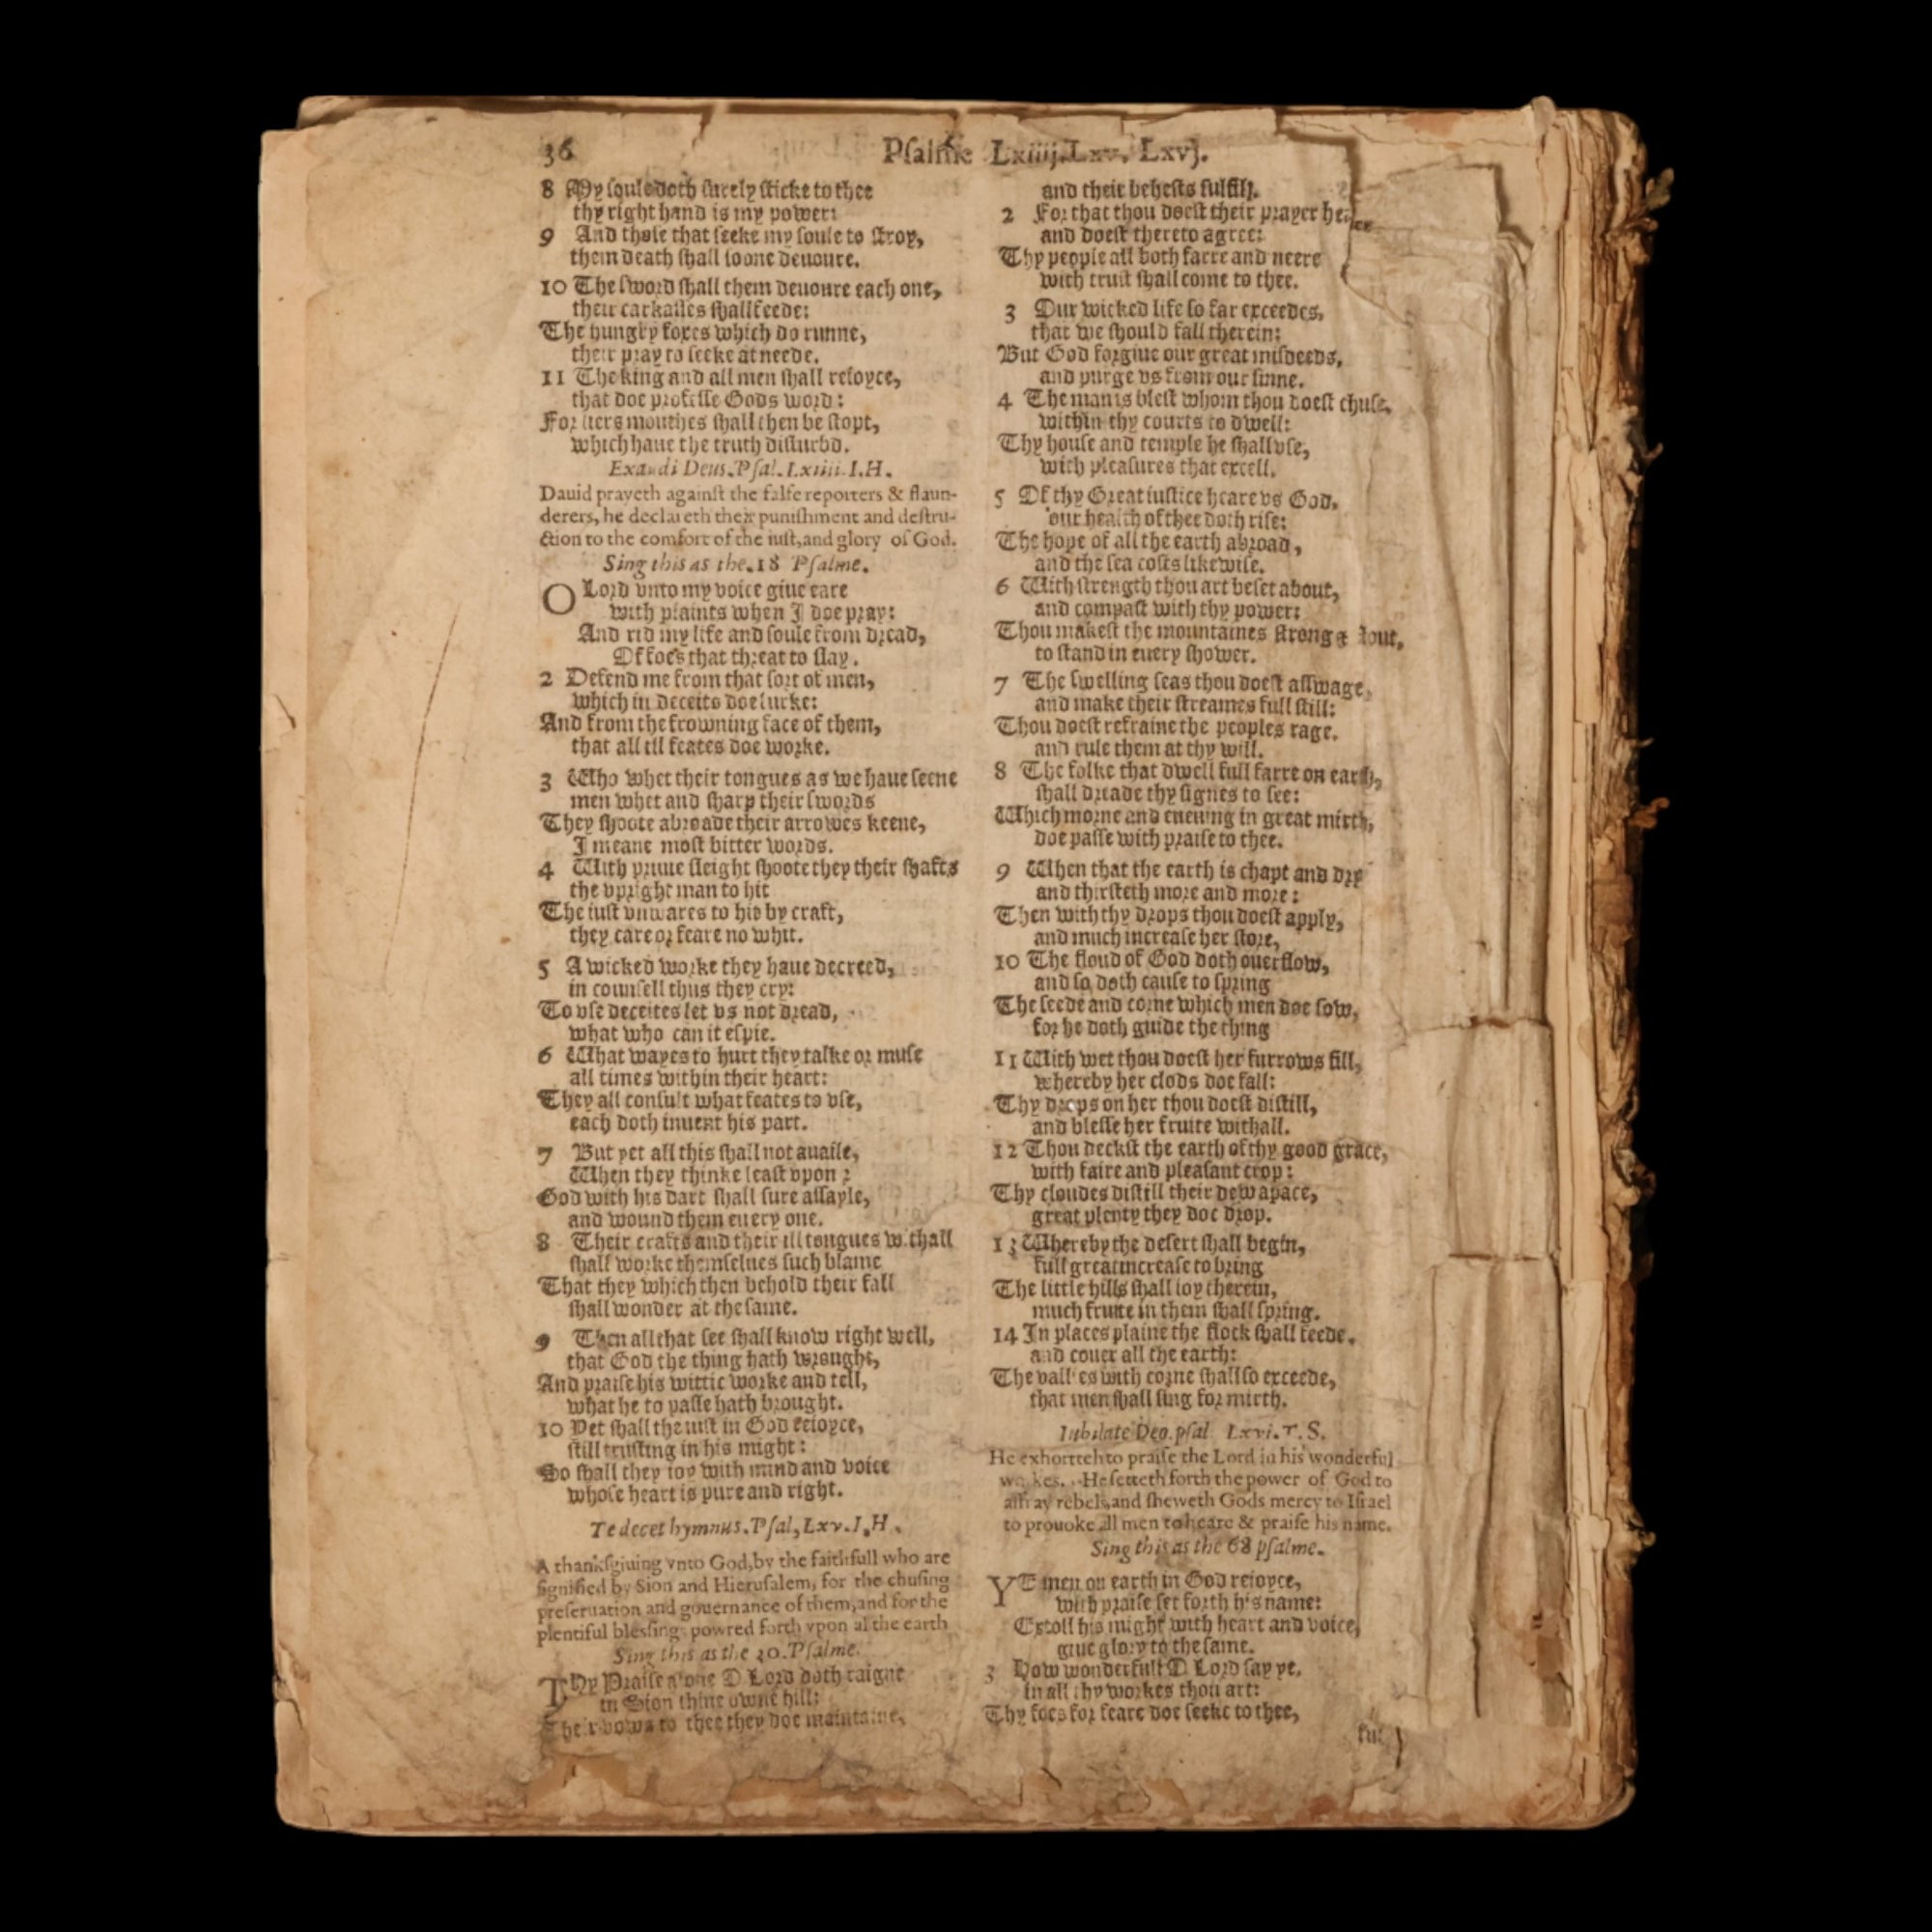 36
Psalme Lxiiij. Lxv. Lxvj.
8 My soule doth surely sticke to thee
thy right hand is my power:
9 And those that seeke my soule to stroy,
them death shall soone deuoure.
10 The sword shall them deuoure each one,
their carkasses shall feede:
The hungry foxes which do runne,
their pray to seeke at neede.
11 The king and all men shall reioyce,
that doe professe Gods word:
For liers mouthes shall then be stopt,
which haue the truth disturbd.
Exaudi Deus. Psal. Lxiiii. I.H.
Dauid prayeth against the false reporters & slaun-
derers, he declareth their punishment and destru-
ction to the comfort of the iust, and glory of God.
Sing this as the. 18 Psalme.
O Lord vnto my voice giue eare
with plaints when I doe pray:
And rid my life and soule from dread,
Of foes that threat to slay.
2 Defend me from that sort of men,
which in deceits doe lurke:
And from the frowning face of them,
that all ill feates doe worke.
3 Who whet their tongues as we haue seene
men whet and sharp their swords
They shoote abroade their arrowes keene,
I meane most bitter words.
4 With priuie sleight shoote they their shafts
the vpright man to hit
The iust vnwares to his by craft,
they care or feare no whit.
5 A wicked worke they haue decreed,
in counsell thus they cry:
To vse deceites let vs not dread,
what who can it espie.
6 What wayes to hurt they talke or muse
all times within their heart:
They all consult what feates to vse,
each doth inuent his part.
7 But yet all this shall not auaile,
When they thinke least vpon:
God with his dart shall sure assayle,
and wound them euery one.
8 Their crafts and their ill tongues withall
shall worke themselues such blame
That they which then behold their fall
shall wonder at the same.
9 Then all that see shall know right well,
that God the thing hath wrought,
And praise his wittie worke and tell,
what he to passe hath brought.
10 Yet shall the iust in God reioyce,
still trusting in his might:
So shall they ioy with mind and voice
whose heart is pure and right.
Te decet hymnus. Psal, Lxv. I.H.
A thanksgiuing vnto God, by the faithfull who are
signified by Sion and Hierusalem, for the chusing
preseruation and gouernance of them, and for the
plentiful blessings powred forth vpon al the earth
Sing this as the 30. Psalme.
Thy Praise alone O Lord doth raigne
in Sion thine owne hill:
Their vowes to thee they doe maintaine,
and their behests fulfill.
2 For that thou doest their prayer
and doest thereto agree:
Thy people all both farre and neere
with trust shall come to thee.
3 Our wicked life so far exceedes,
that we should fall therein:
But God forgiue our great misdeeds,
and purge vs from our sinne.
4 The man is blest whom thou doest chuse,
within thy courts to dwell:
Thy house and temple he shall vse,
with pleasures that excell.
5 Of thy Great iustice heare vs God,
our health of thee doth rise:
The hope of all the earth abroad,
and the sea costs likewise.
6 With strength thou art beset about,
and compast with thy power:
Thou makest the mountaines strong &
to stand in euery shower.
7 The swelling seas thou doest asswage,
and make their streames full still:
Thou doest refraine the peoples rage,
and rule them at thy will.
8 The folke that dwell full farre on earth,
shall dreade thy signes to see:
Which morne and euening in great mirth,
doe passe with praise to thee.
9 When that the earth is chapt and dry
and thirsteth more and more:
Then with thy drops thou doest apply,
and much increase her store,
10 The floud of God doth ouerflow,
and so doth cause to spring
The seede and corne which men doe sow,
for he doth guide the thing
11 With wet thou doest her furrows fill,
whereby her clods doe fall:
Thy drops on her thou doest distill,
and blesse her fruite withall.
12 Thou deckst the earth of thy good grace,
with faire and pleasant crop:
Thy cloudes distill their dew apace,
great plenty they doe drop.
13 Whereby the desert shall begin,
full great increase to bring
The little hills shall ioy therein,
much fruite in them shall spring.
14 In places plaine the flock shall feede,
and couer all the earth:
The vallies with corne shall so exceede,
that men shall sing for mirth.
Iubilate Deo. psal Lxvi. T. S.
He exhorteth to praise the Lord in his wonderful
workes. He setteth forth the power of God to
affray rebels, and sheweth Gods mercy to Israel
to prouoke all men to heare & praise his name.
Sing this as the 68 psalme.
YE men on earth in God reioyce,
with praise set forth his name:
Extoll his might with heart and voice,
giue glory to the same.
3 How wonderfull O Lord say ye,
in all thy workes thou art:
Thy foes for feare doe seeke to thee,